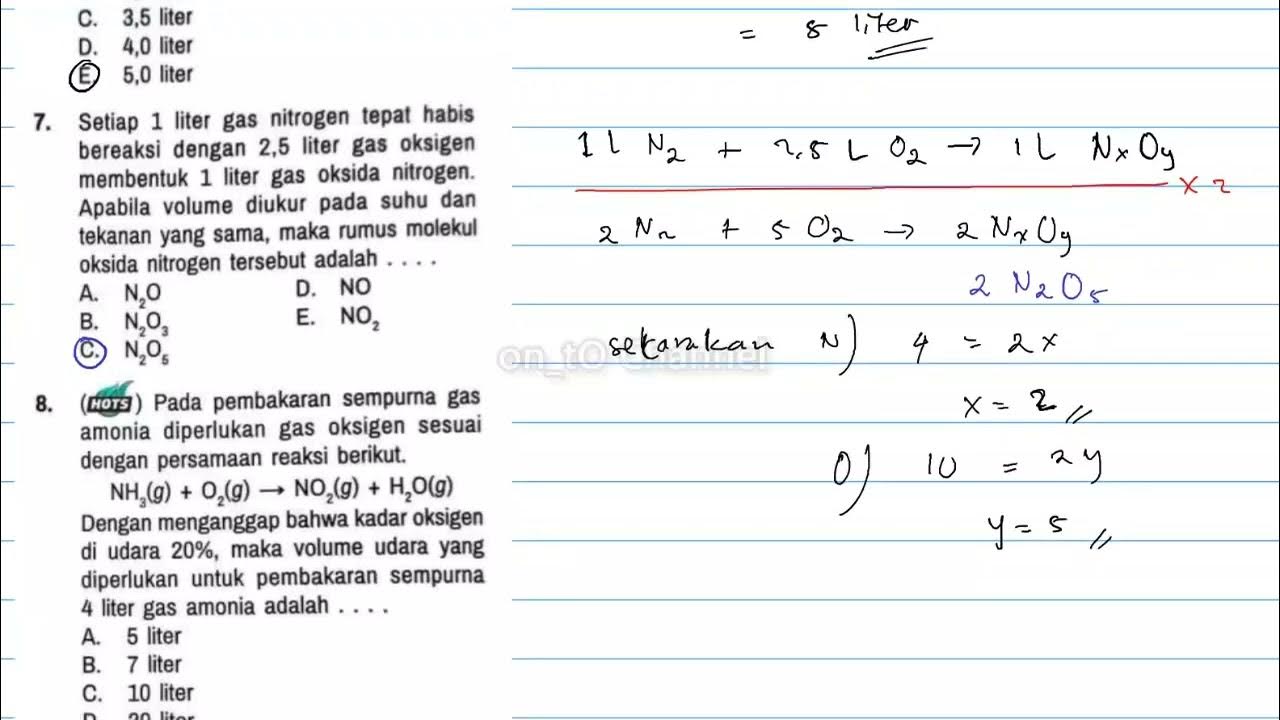 C. 3,5 liter
D. 4,0 liter
E 5,0 liter
= 5 liter
7. Setiap 1 liter gas nitrogen tepat habis
bereaksi dengan 2,5 liter gas oksigen
membentuk 1 liter gas oksida nitrogen.
Apabila volume diukur pada suhu dan
tekanan yang sama, maka rumus molekul
oksida nitrogen tersebut adalah . . . .
A. N₂O D. NO
B. N₂O₃ E. NO₂
C. N₂O₅
1 L N₂ + 2,5 L O₂ → 1 L NxOy
x 2
2 N₂ + 5 O₂ → 2 NxOy
2 N₂O₅
setarakan N) 4 = 2x
x = 2
O) 10 = 2y
y = 5
on_tO Channel
8. (HOTS) Pada pembakaran sempurna gas
amonia diperlukan gas oksigen sesuai
dengan persamaan reaksi berikut.
NH₃(g) + O₂(g) → NO₂(g) + H₂O(g)
Dengan menganggap bahwa kadar oksigen
di udara 20%, maka volume udara yang
diperlukan untuk pembakaran sempurna
4 liter gas amonia adalah . . . .
A. 5 liter
B. 7 liter
C. 10 liter
D. 20 liter